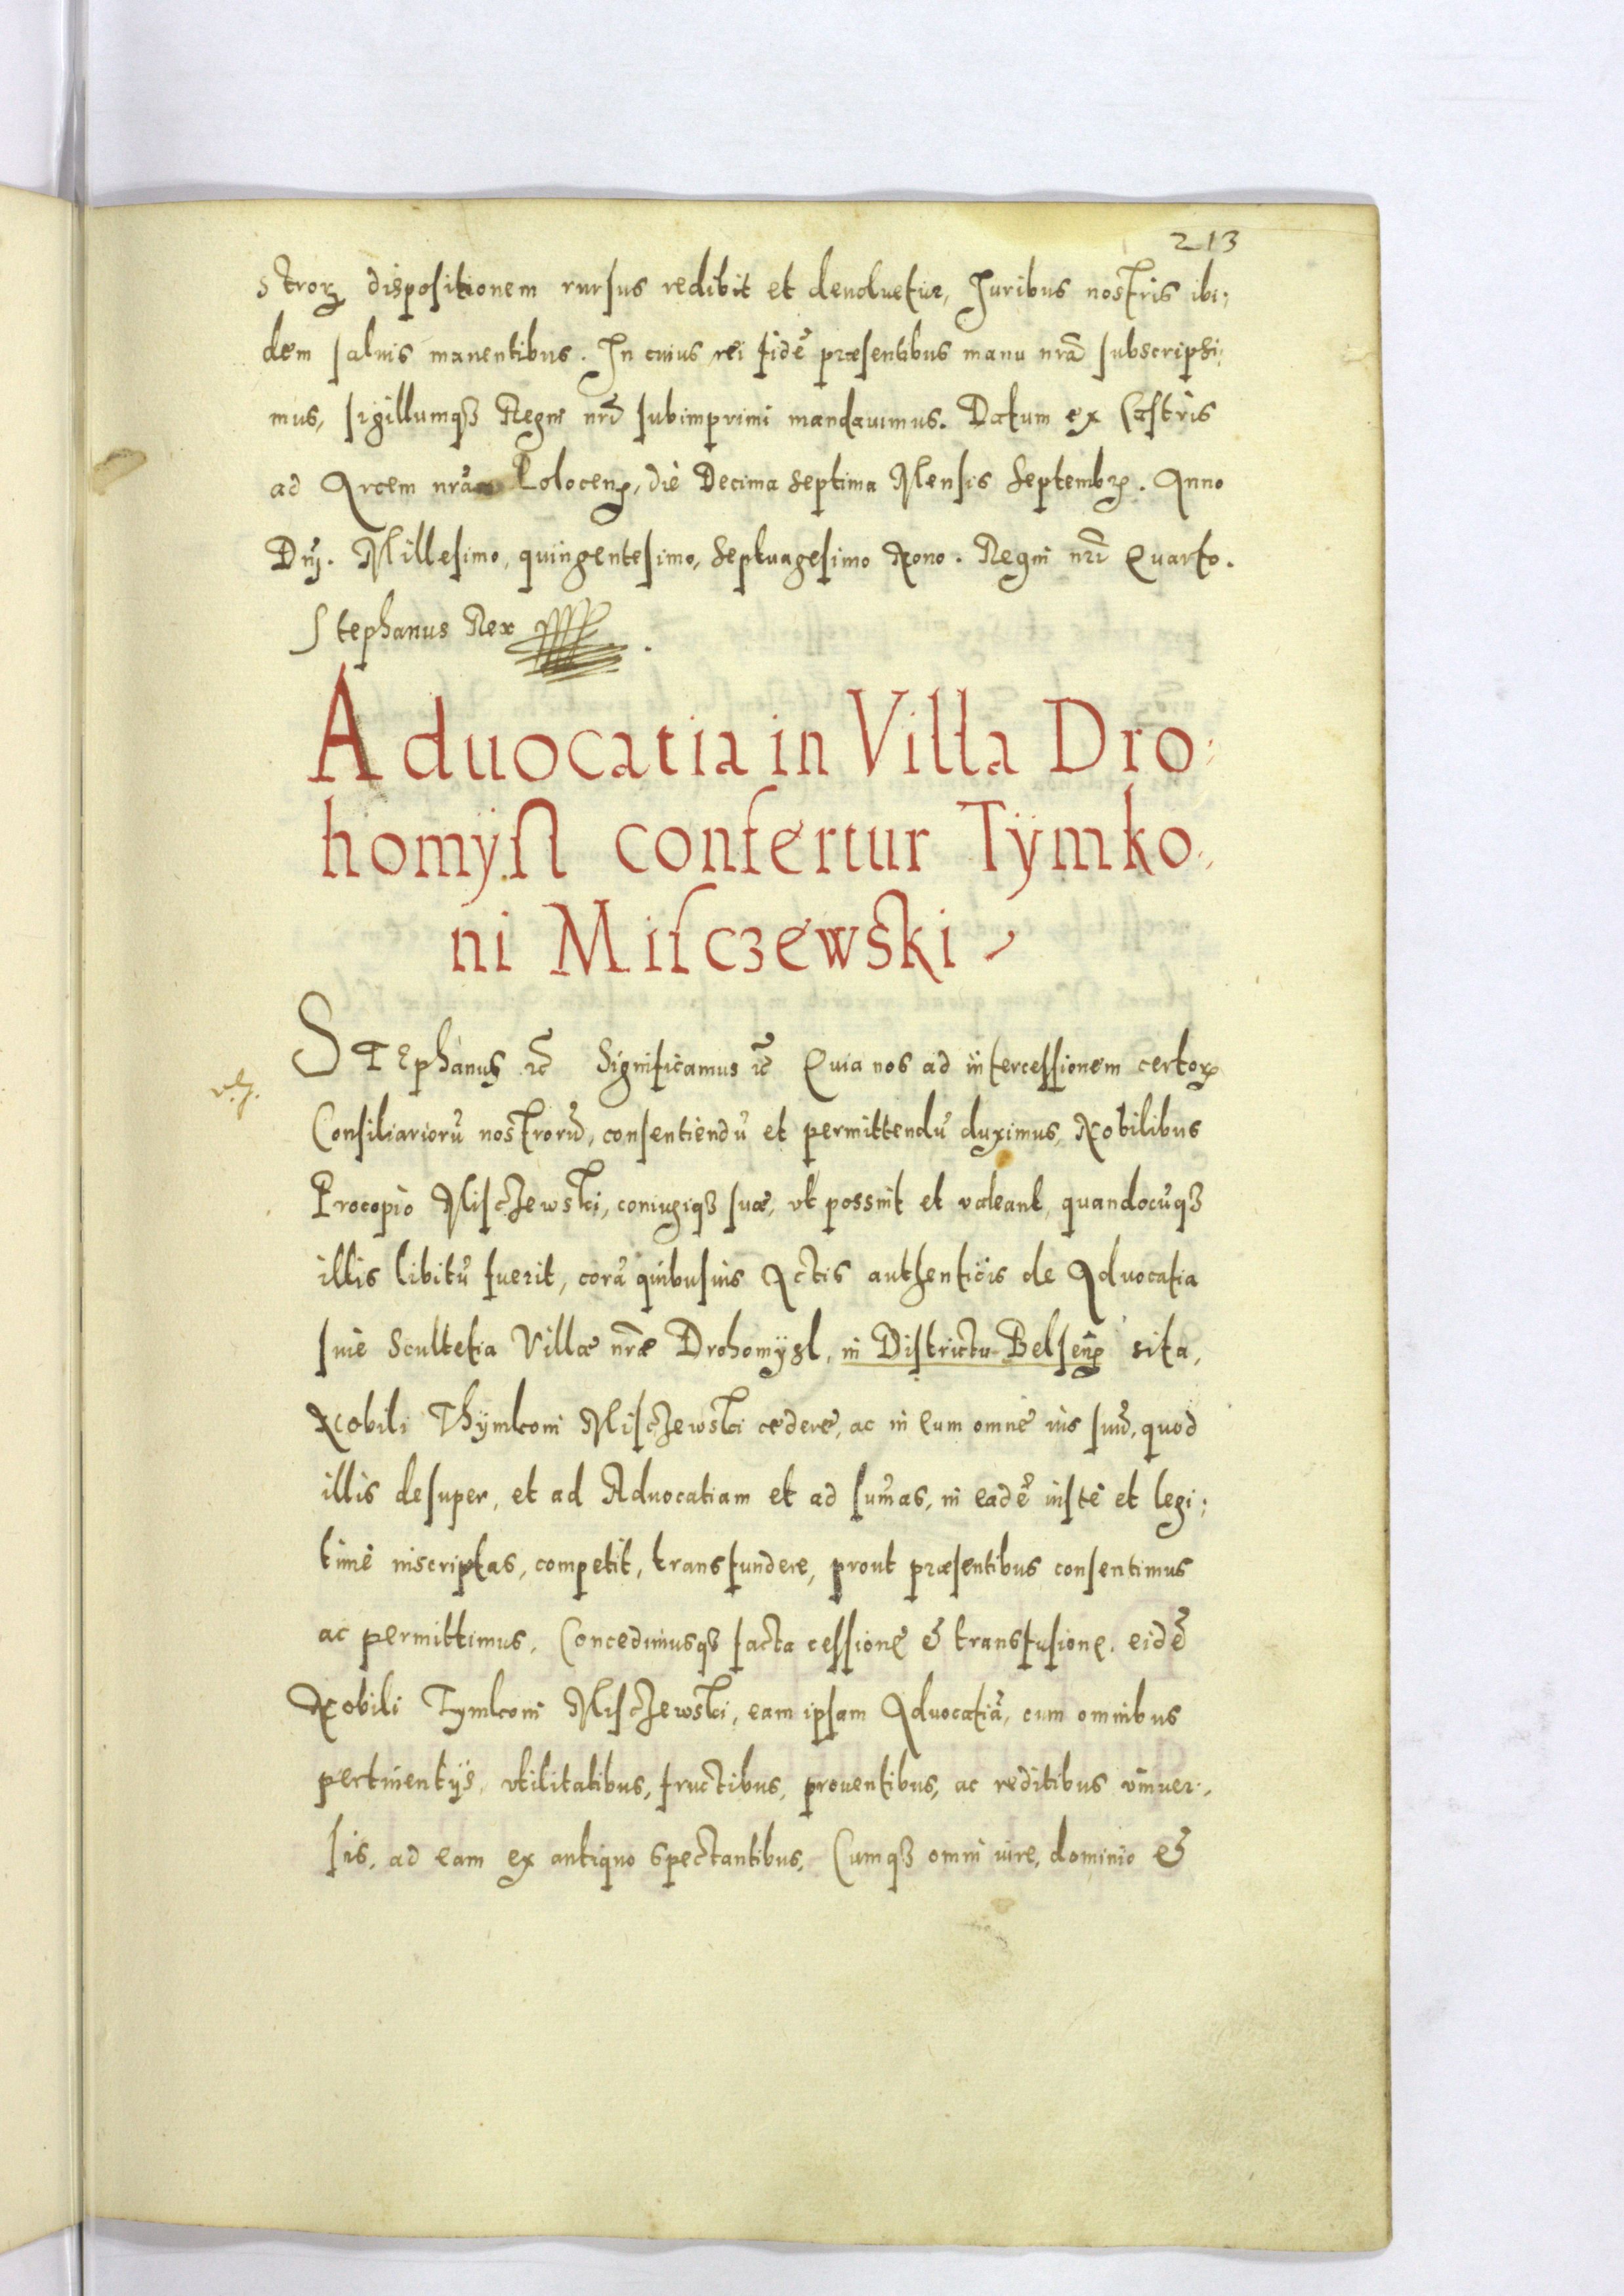 213
stroꝝ dispositionem rursus redibit et deuoluetur, Juribus nostris ibi:
dem saluis manentibus. In cuius rei fidē præsentibus manu nr̄a subscripsi:
mus, sigillumqꝫ Regni nr̄i subimprimi mandauimus. Datum ex Castris
ad Arcem nr̄am Polocen̄, die Decima septima Mensis Septembr̄. Anno
Dnj. Millesimo, quingentesimo, Septuagesimo Nono. Regni nr̄i Quarto.
Stephanus Rex
Aduocatia in Villa Dro:
homysl confertur Tÿmko:
ni Misczewski
STEphanus ꝛc̄ Significamus ꝛc̄ Quia nos ad intercessionem certoꝝ
Consiliariorū nostrorū, consentiendū et permittendū duximus, Nobilibus
Procopio Misczewski, coniugiqꝫ suæ, vt possint et valeant, quandocūqꝫ
illis libitū fuerit, corā quibusuis Actis authenticis de Aduocatia
siue Scultetia Villæ nr̄æ Drohomÿsl, in Districtu Belsen̄ sita,
Nobili Thÿmkoni Misczewski cedere, ac in eum omne ius suū, quod
illis desuper, et ad Aduocatiam et ad sum̄as, in eadē iuste et legi:
time inscriptas, competit, transfundere, prout præsentibus consentimus
ac permittimus. Concedimusqꝫ facta cessione & transfusione. eidē
Nobili Tymkoni Misczewski, eam ipsam Aduocatiā, cum omnibus
pertinentijs, vtilitatibus, fructibus, prouentibus, ac reditibus vniuer:
sis, ad eam ex antiquo spectantibus, Cumqꝫ omni iure, dominio &